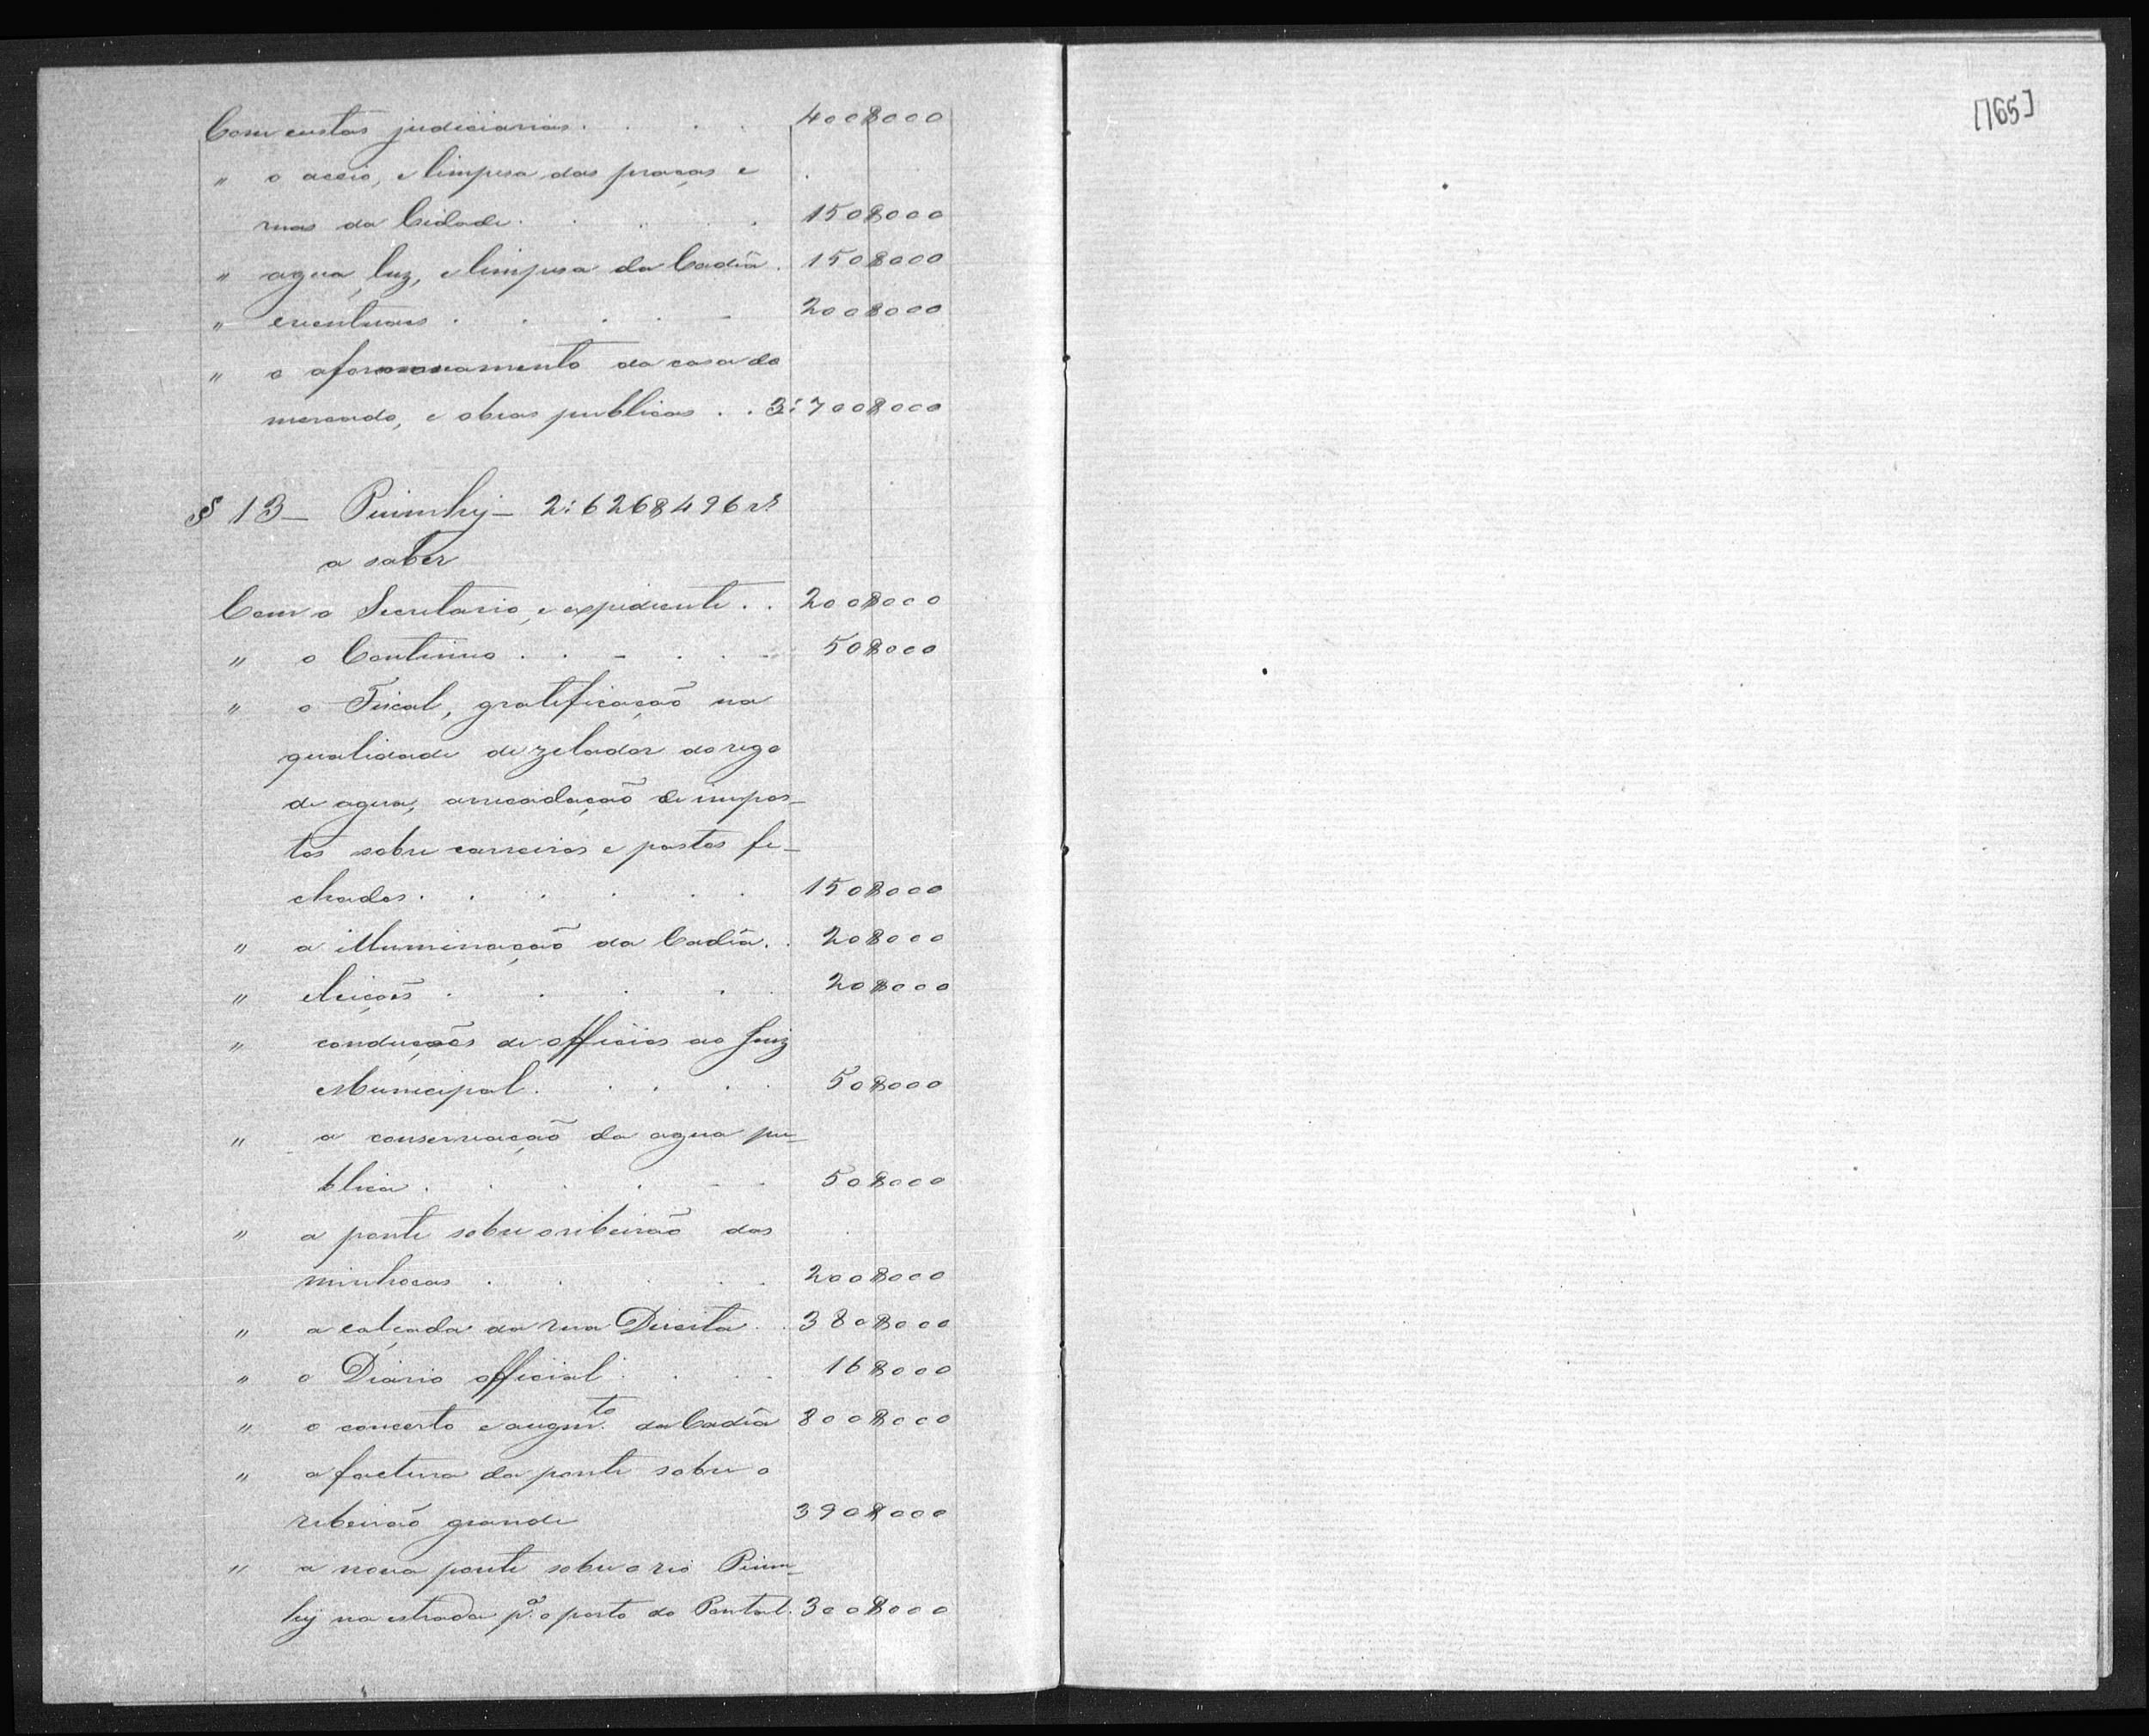 Com custas judiciarias . . . . 400$000
" o aceio, e limpesa das praças e
ruas da Cidade . . . . . 150$000
" agua, luz, e limpesa da Cadêa . 150$000
" eventuaes . . . . . 200$000
" o aformoseamento da casa do
mercado, e obras publicas . . 3:700$000
§ 13 — Piumhy — 2:626$496 rs
a saber
Com o Secretario, e expediente . . 200$000
" o Continuo . . . . . . 50$000
" o Fiscal, gratificação na
qualidade de zelador do rego
de agua, arrecadação de impos-
tos sobre carreiros e pastos fe-
chados . . . . . . 150$000
" a illuminação da Cadêa . . 20$000
" eleições . . . . . 20$000
" conducções de officios ao Juiz
Municipal . . . . . 50$000
" a conservação da agua pu-
blica . . . . . . 50$000
" a ponte sobre o ribeirão das
minhocas . . . . . 200$000
" a calçada da rua Direita . . 380$000
" o Diario official . . . . 16$000
" o concerto e augmto. da Cadêa 800$000
" a factura da ponte sobre o
ribeirão grande 390$000
" a nova ponte sobre o rio Pium-
hy na estrada pa. o porto do Pontal . 300$000
[165]